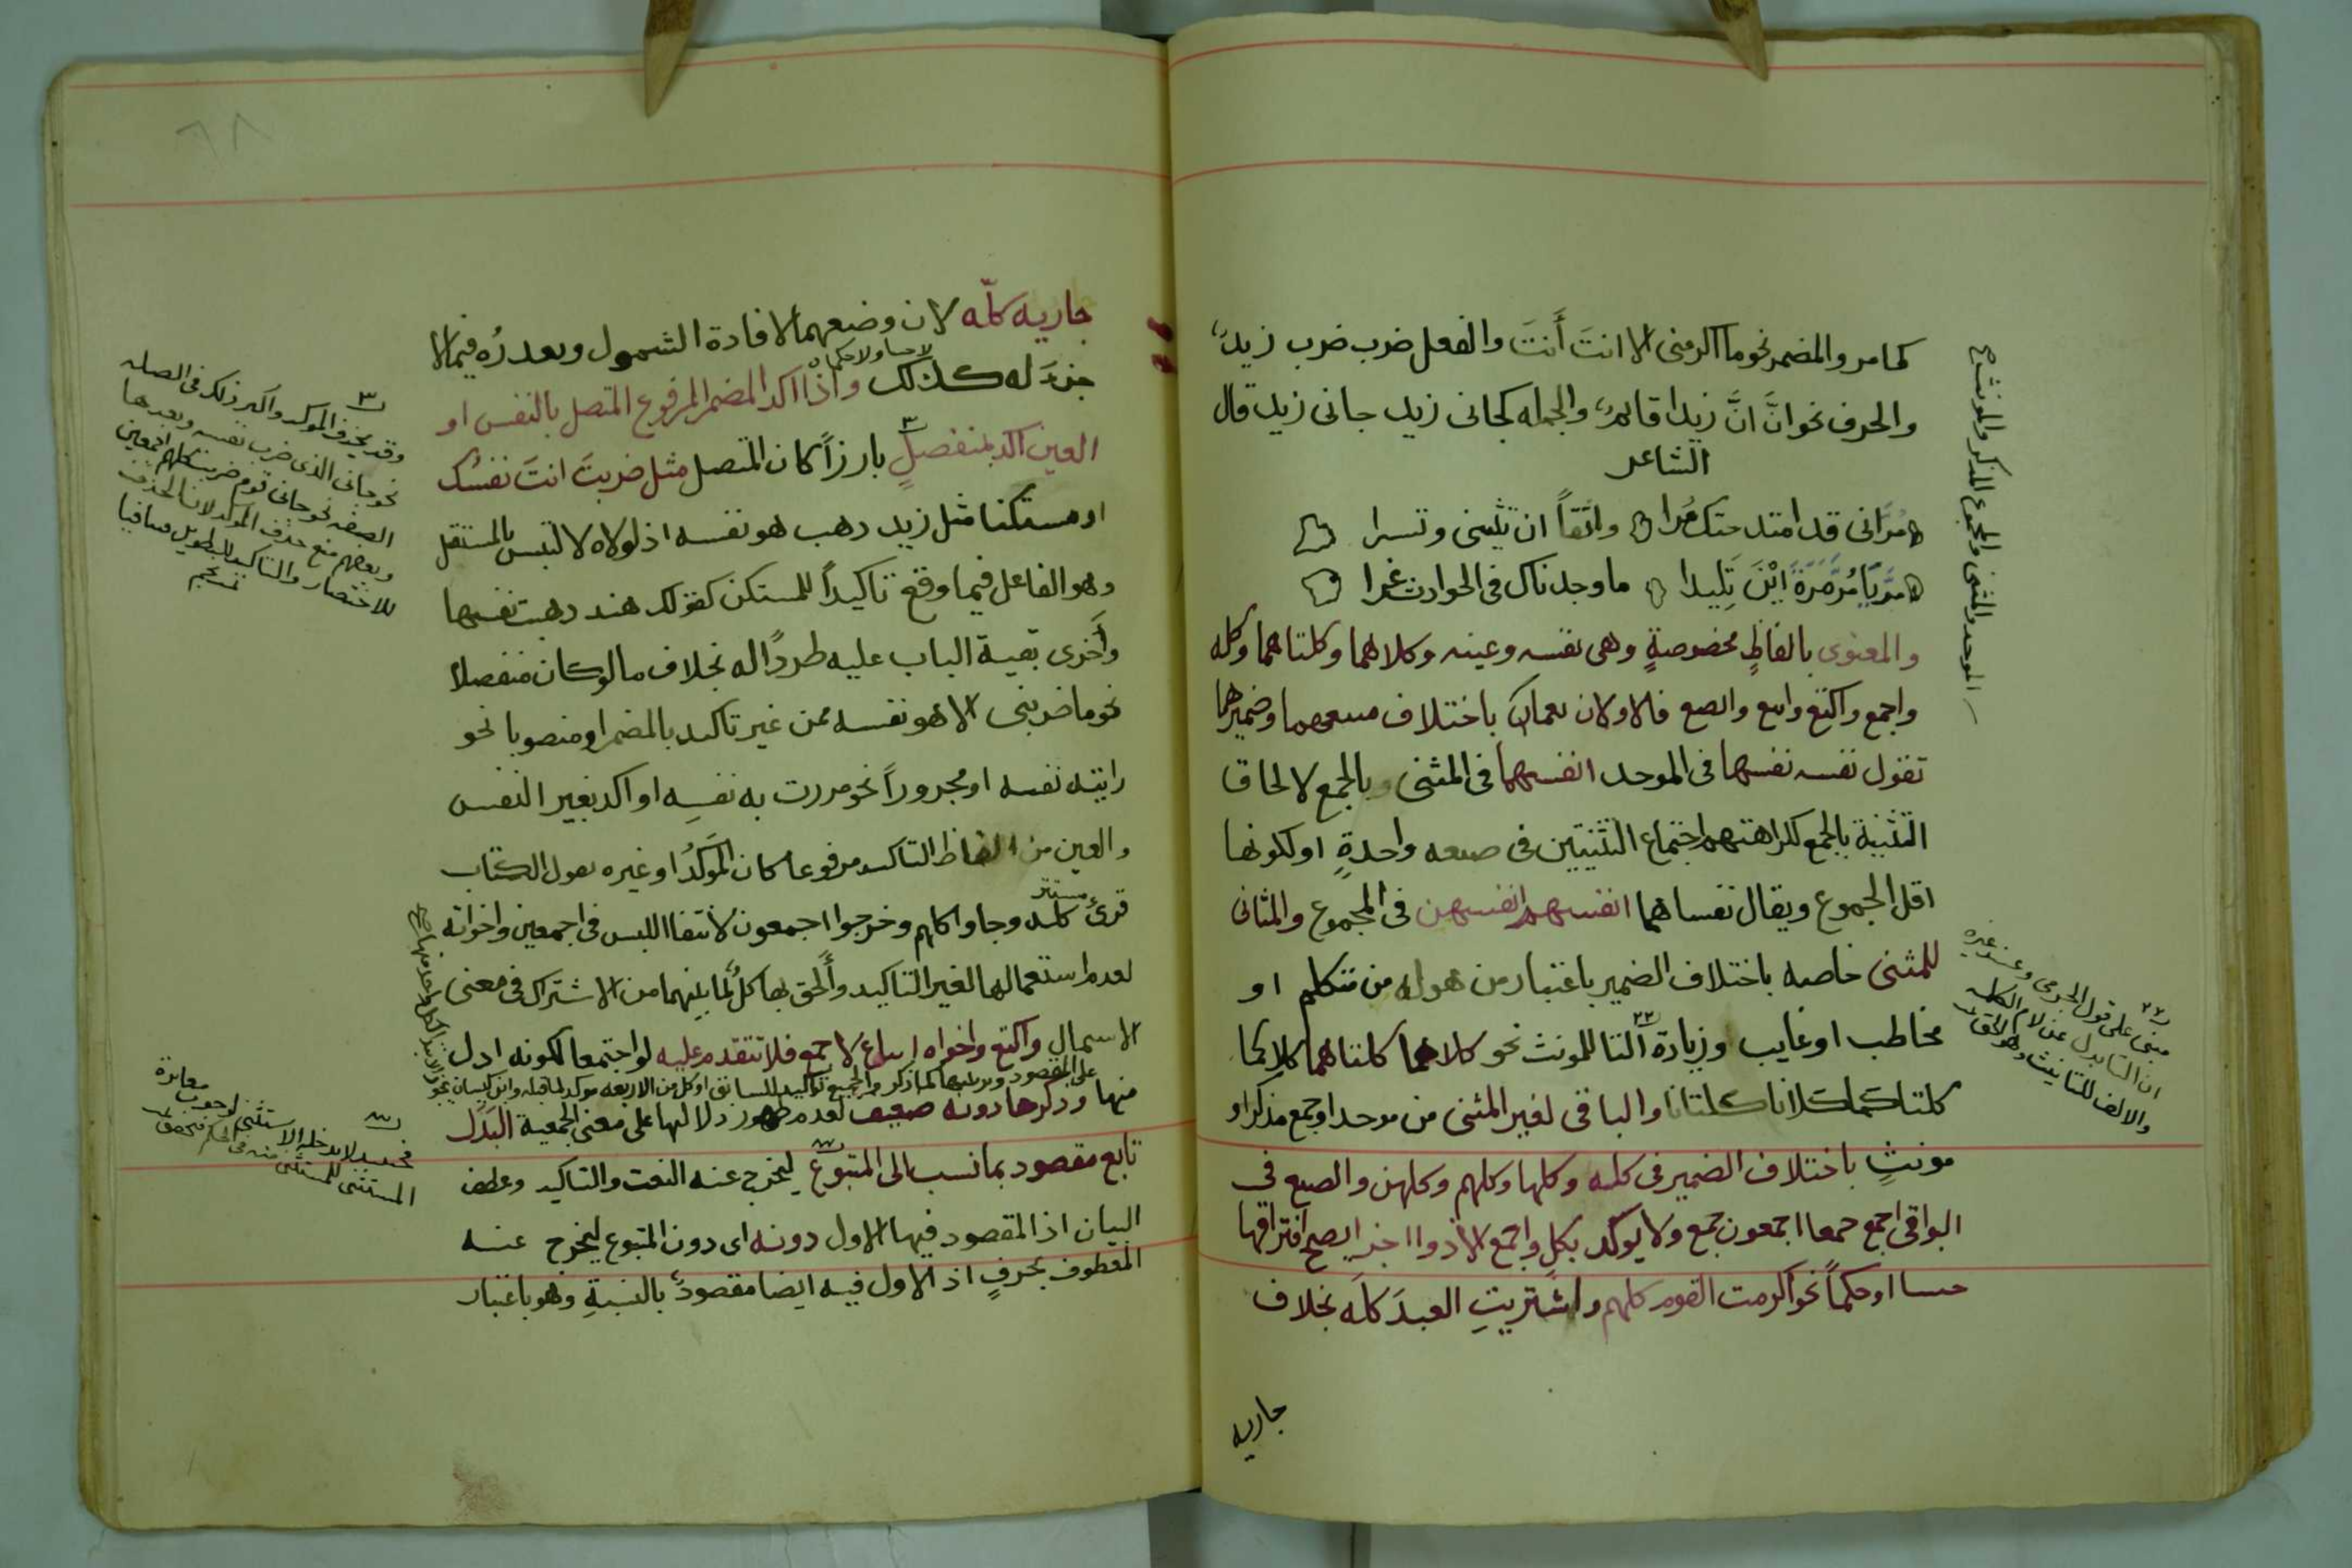 كما مر والمضمر نحو ما اكرمنى الا انتَ أَنتَ والفعل ضرب ضرب زيدٌ
والحرف نحو انَّ انَّ زيدا قائمٌ والجمله كجانى زيد جانى زيد قال
الشاعر
مُرَّانى قد امتد حتك مُرا واثقاً ان تثيبنى وتسرا
مُرَّ يَا مُرَّ مَرَةَ ابْنَ تَلِيدا ما وجدناك فى الحوادث غرا
والمعنوى بالفاظٍ مخصوصةٍ وهى نفسه وعينه وكلاهما وكلتاهما وكله
واجمع واكتع وابتع وابصع فالاولان يعمان باختلاف صيغتهما وضميرهما
تقول نفسه نفسها فى الموحد انفسهما فى المثنى وبالجمع لالحاق
التثنية بالجمع لكراهتهم اجتماع التثنيتين فى صيغه واحدةٍ او لكونها
اقل الجموع ويقال نفساهما انفسهم انفسهن فى المجموع والثانى
للمثنى خاصه باختلاف الضمير باعتبار من هو له من متكلم او
مخاطب او غايب وزيادة التا للمونث نحو كلاهما كلتاهما كلاكما
كلتاكما كلانا كلتانا والباقى لغير المثنى من موحد او جمع مذكر او
مونثٍ باختلاف الضمير فى كله وكلها وكلهم وكلهن والصيغ فى
البواقى اجمع جمعا اجمعون جمع ولا يوكّد بكلٍ واجمع الا ذو اجزا يصح افتراقها
حسا او حكماً نحو اكرمت القوم كلهم واشتريتِ العبدَ كلَه بخلاف
جاريه
الموحد والمثنى والمجموع المذكر والمونث
مبنى على قول الجرمى وعند غيره
ان التا بدل عن لام الكلمه
والالف للتانيث وهو الحق
جاريه كلّه لان وضعهما لافادة الشمول وتعذرُه فيما لا
لا حسا ولا حكما
جزءَ له كذلك واذا اكد المضمر المرفوع المتصل بالنفس او
العين اكد بمنفصلٍ بارزاً كان المتصل مثل ضربتَ انتَ نفسُك
او مستكنا مثل زيد ذهب هو نفسه اذ لولاه لالتبس بالمستقل
وهو الفاعل فيما وقع تاكيداً للمستكن كقولك هند ذهبت نفسها
وأَجرى بقية الباب عليه طرداً له بخلاف ما لو كان منفصلا
نحو ما ضربنى الا هو نفسه فمن غير تاكيد بالمضمر او منصوبا نحو
رايته نفسه او مجروراً نحو مررت به نفسِه او اكد بغير النفس
والعين من الفاظ التاكيد مرفوعا كان الموكَّدُ او غيره تقول الكتاب
قرئ كله وجاوا كلهم وخرجوا اجمعون لانتفا اللبس فى اجمعين واخواته
لعدم استعمالها لغير التاكيد وأُلحق بها كلٌ لما بينهما من الاشتراك فى معنى
الاستعمال واكتع واخواه اتباع لاجمع فلا تتقدم عليه لو اجتمعا لكونه ادل
على المقصود
منها وذكرها دونه ضعيف لعدم ظهور دلالتها على معنى الجمعية البَدل
تابع مقصود بما نسب الى المتبوع ليخرج عنه النعت والتاكيد وعطف
البيان اذ المقصود فيها الاول دونه اى دون المتبوع ليخرج عنه
المعطوف بحرفٍ اذ الاول فيه ايضا مقصودٌ بالنسبةِ وهو باعتبار
وقد يحذف الموكد واكثر ذلك فى الصله
نحو جانى الذى ضربت نفسه وبعدها
الصفه نحو جانى قوم ضربت كلهم اجمعين
وبعضهم منع حذف الموكد لان الحذف
للاختصار والتاكيد للتطويل فتنافيا